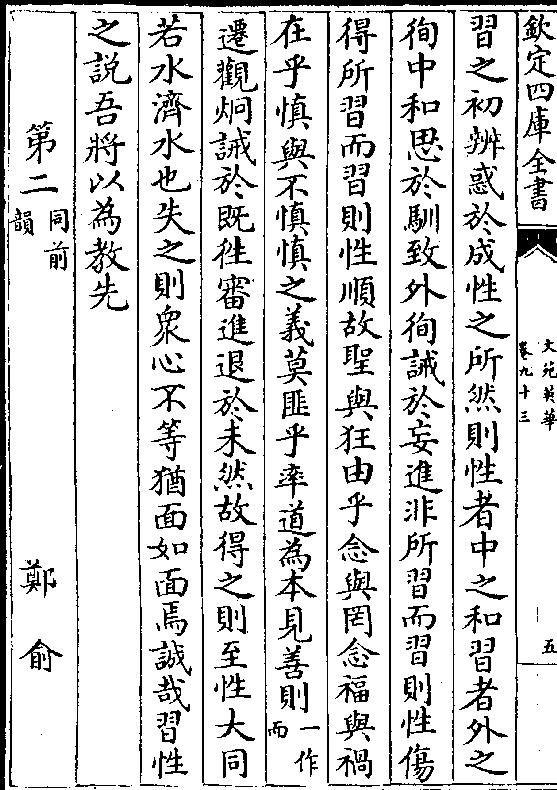 欽定四庫全書
文苑英華
卷九十三
五
習之初辨惑於成性之所然則性者中之和習者外之
徇中和思於馴致外徇誡於妄進非所習而習則性傷
得所習而習則性順故聖與狂由乎念與罔念福與禍
在乎慎與不慎慎之義莫匪乎率道為本見善則一作而
遷觀炯誡於既徃審進退於未然故得之則至性大同
若水濟水也失之則衆心不等猶面如面焉誠哉習性
之說吾將以為教先
第二同前韻　鄭俞